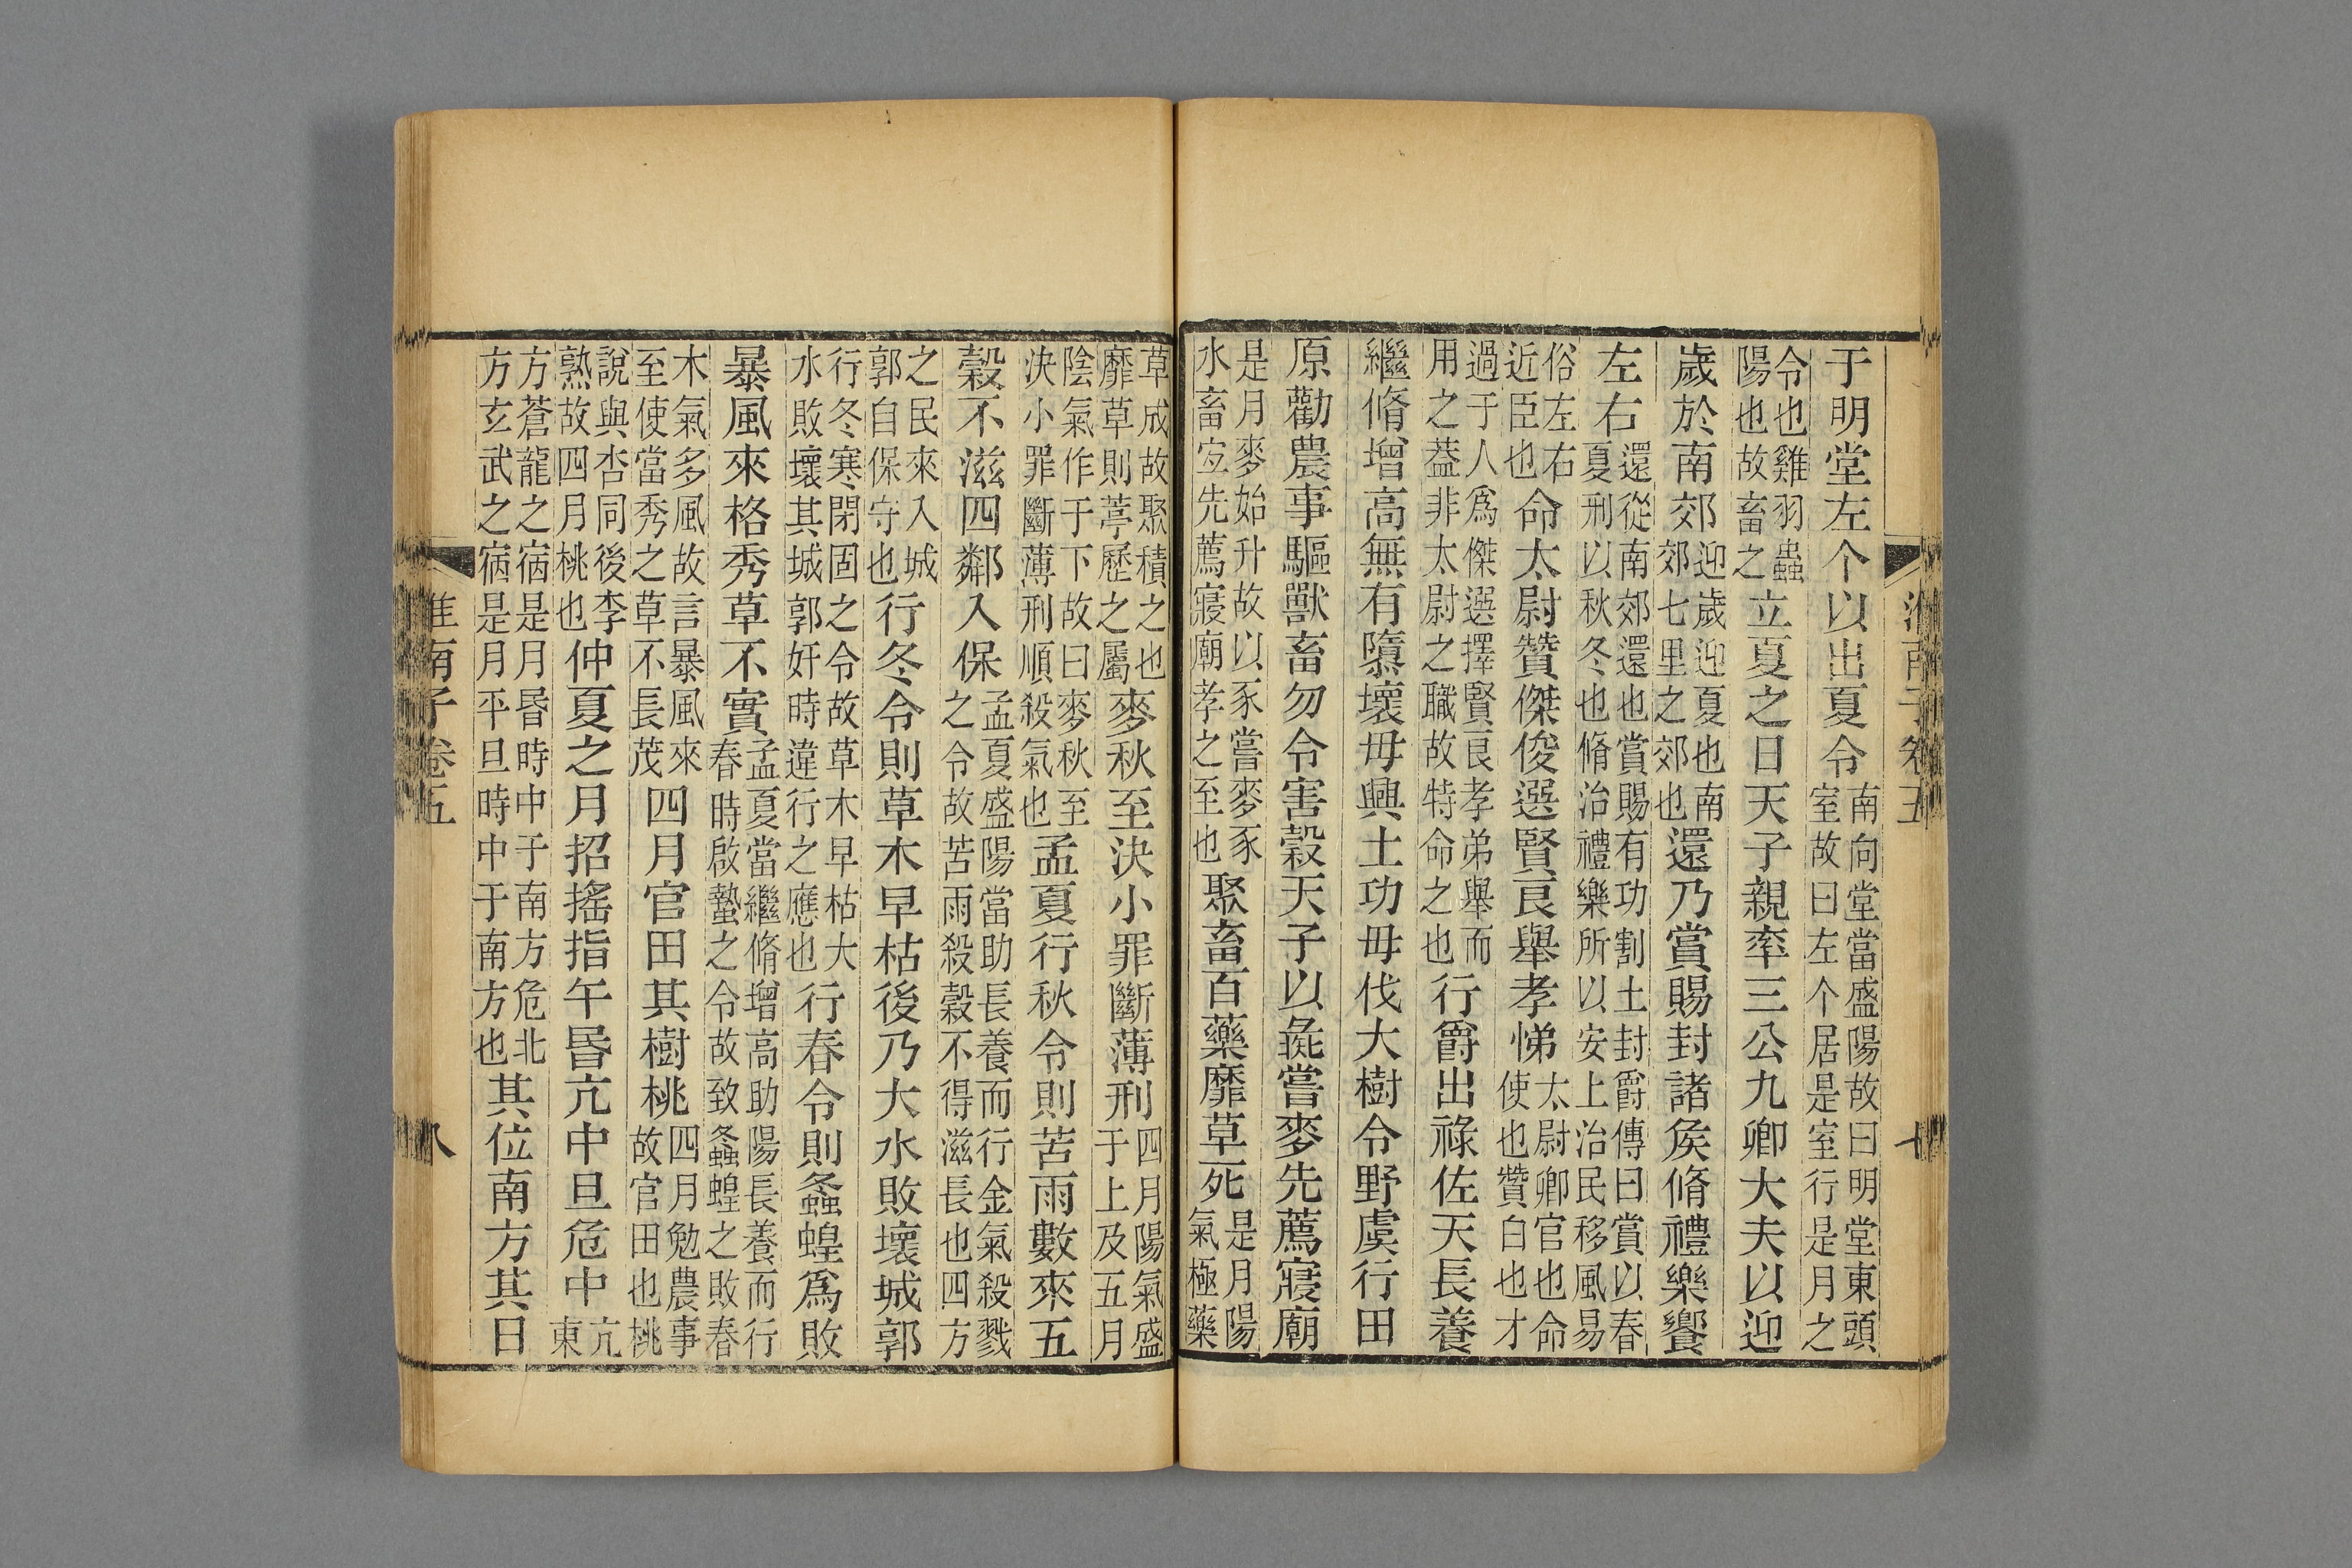 淮南子卷五
于明堂左个以出夏令南向堂當盛陽故曰明堂東頭室故曰左个居是室行是月之
令也雞羽蟲陽也故畜之立夏之日天子親率三公九卿大夫以迎
歲於南郊迎歲迎夏也南郊七里之郊也還乃賞賜封諸矦脩禮樂饗
左右還從南郊還也賞賜有功割土封爵傳曰賞以春夏刑以秋冬也脩治禮樂所以安上治民移風易
俗左右近臣也命太尉贊傑俊選賢良舉孝悌太尉卿官也命使也贊白也才
過于人爲傑選擇賢良孝弟舉而用之葢非太尉之職故特命之也行爵出祿佐天長養
繼脩增高無有隳壞毋興土功毋伐大樹令野虞行田
原勸農事驅獸畜勿令害穀天子以彘嘗麥先薦寢廟
是月麥始升故以豕嘗麥豕水畜宐先薦寢廟孝之至也聚畜百藥靡草死是月陽氣極藥
草成故聚積之也靡草則葶歷之屬麥秋至決小罪斷薄刑四月陽氣盛于上及五月
陰氣作于下故曰麥秋至決小罪斷薄刑順殺氣也孟夏行秋令則苦雨數來五
穀不滋四鄰入保孟夏盛陽當助長養而行金氣殺戮之令故苦雨殺穀不得滋長也四方
之民來入城郭自保守也行冬令則草木早枯後乃大水敗壞城郭
行冬寒閉固之令故草木早枯大水敗壞其城郭奸時違行之應也行春令則螽蝗爲敗
暴風來格秀草不實孟夏當繼脩增高助陽長養而行春時啟蟄之令故致螽蝗之敗春
木氣多風故言暴風來至使當秀之草不長茂四月官田其樹桃四月勉農事故官田也桃
說與杏同後李熟故四月桃也仲夏之月招搖指午昬亢中旦危中亢東
方蒼龍之宿是月昬時中于南方危北方玄武之宿是月平旦時中于南方也其位南方其日
淮南子卷五 八